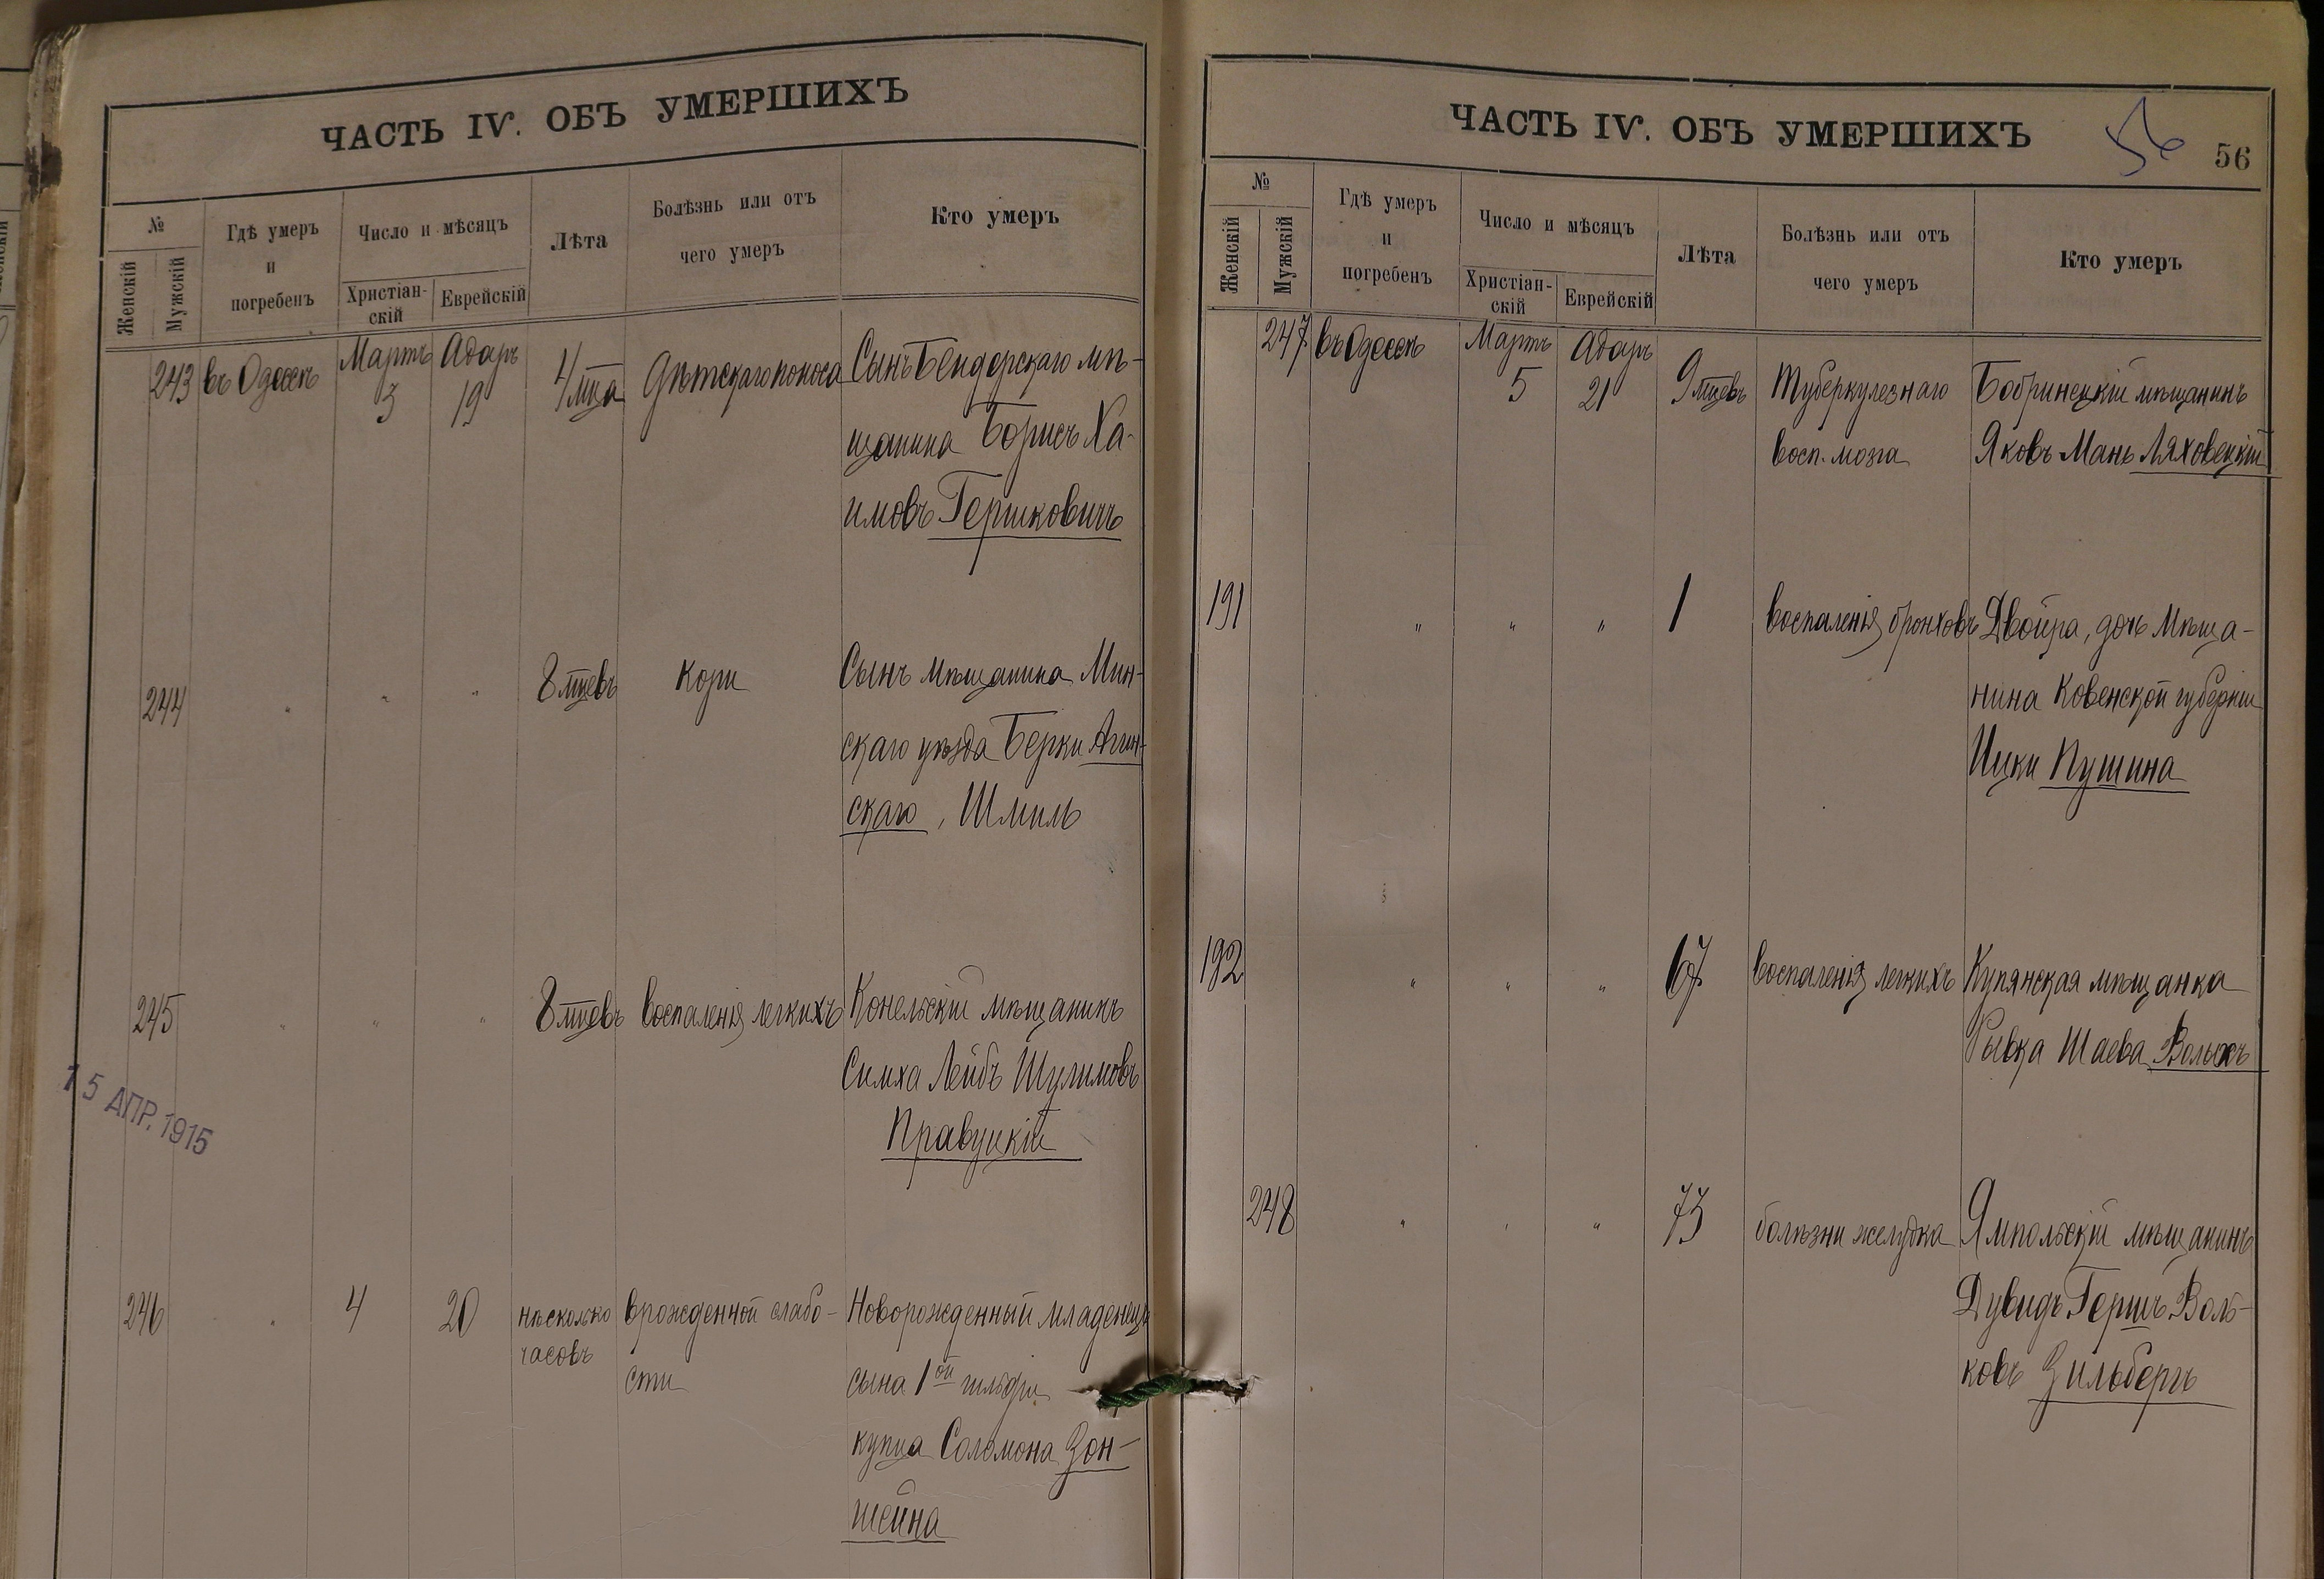 ЧАСТЬ IV. ОБЪ УМЕРШИХЪ
№
Женскій
Мужскій
Гдѣ умеръ
и
погребенъ
Число и мѣсяцъ
Христіан-
скій
Еврейскій
Лѣта
Болѣзнь или отъ
чего умеръ
Кто умеръ
243 въ Одессѣ Мартъ 3 Адаръ 19 4 мца Дѣтскаго поноса Сынъ Бендерскаго мѣ-
щанина Борисъ Ха-
имовъ Гершковичъ
244 " " " 8 мцевъ Кори Сынъ мѣщанина Мин-
скаго уѣзда Берки Агин-
скаго, Шмиль
245 " " " 8 мцевъ Воспаленія легкихъ Конельскій мѣщанинъ
Симха Лейбъ Шулимовъ
Правуцкій
15 АПР. 1915
246 " 4 20 нѣсколько врожденной слабо- Новорожденный младенецъ
часовъ сти сына 1ой гильдіи
купца Соломона Зон-
штейна
ЧАСТЬ IV. ОБЪ УМЕРШИХЪ
56
56
№
Женскій
Мужскій
Гдѣ умеръ
и
погребенъ
Число и мѣсяцъ
Христіан-
скій
Еврейскій
Лѣта
Болѣзнь или отъ
чего умеръ
Кто умеръ
247 въ Одессѣ Мартъ 5 Адаръ 21 9 мцевъ Туберкулезнаго Бобринецкій мѣщанинъ
восп. мозга Яковъ-Мань Ляховецкій
191 " " " 1 Воспаленія бронховъ Двойра, дочь Мѣща-
нина Ковенской губерніи
Ицки Пушина
192 " " " 67 Воспаленія легкихъ Купянская мѣщанка
Рывка Шаева Вольохъ
248 " " " 73 болѣзни желудка Ямпольскій мѣщанинъ
Дувидъ Гершъ Воль-
ковъ Зильбергъ